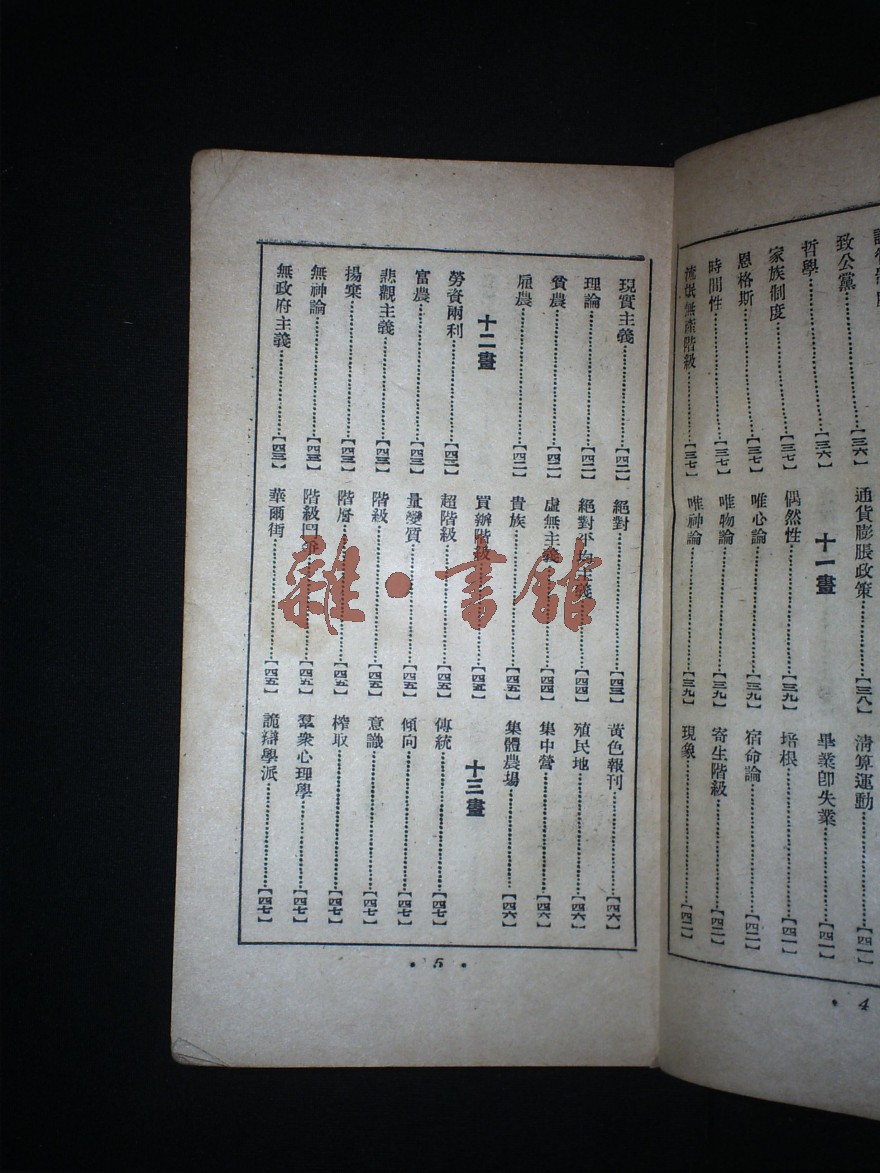 致公黨………【三六】
哲學………【三六】
家族制度………【三七】
恩格斯………【三七】
時間性………【三七】
流氓無產階級………【三七】
通貨膨脹政策………【三八】
十一畫
偶然性………【三九】
唯心論………【三九】
唯物論………【三九】
唯神論………【三九】
清算運動………【四一】
畢業卽失業………【四一】
培根………【四一】
宿命論………【四二】
寄生階級………【四二】
現象………【四二】
• 4
現實主義………【四二】
理論………【四二】
貧農………【四二】
雇農………【四二】
十二畫
勞資兩利………【四三】
富農………【四三】
悲觀主義………【四三】
揚棄………【四三】
無神論………【四三】
無政府主義………【四三】
絕對………【四三】
絕對平均主義………【四四】
虛無主義………【四四】
貴族………【四五】
買辦階級………【四五】
超階級………【四五】
量變質………【四五】
階級………【四五】
階層………【四五】
階級鬥爭………【四五】
華爾街………【四五】
黃色報刊………【四六】
殖民地………【四六】
集中營………【四六】
集體農場………【四六】
十三畫
傳統………【四七】
傾向………【四七】
意識………【四七】
榨取………【四七】
羣衆心理學………【四七】
詭辯學派………【四七】
• 5 •
雜·書館